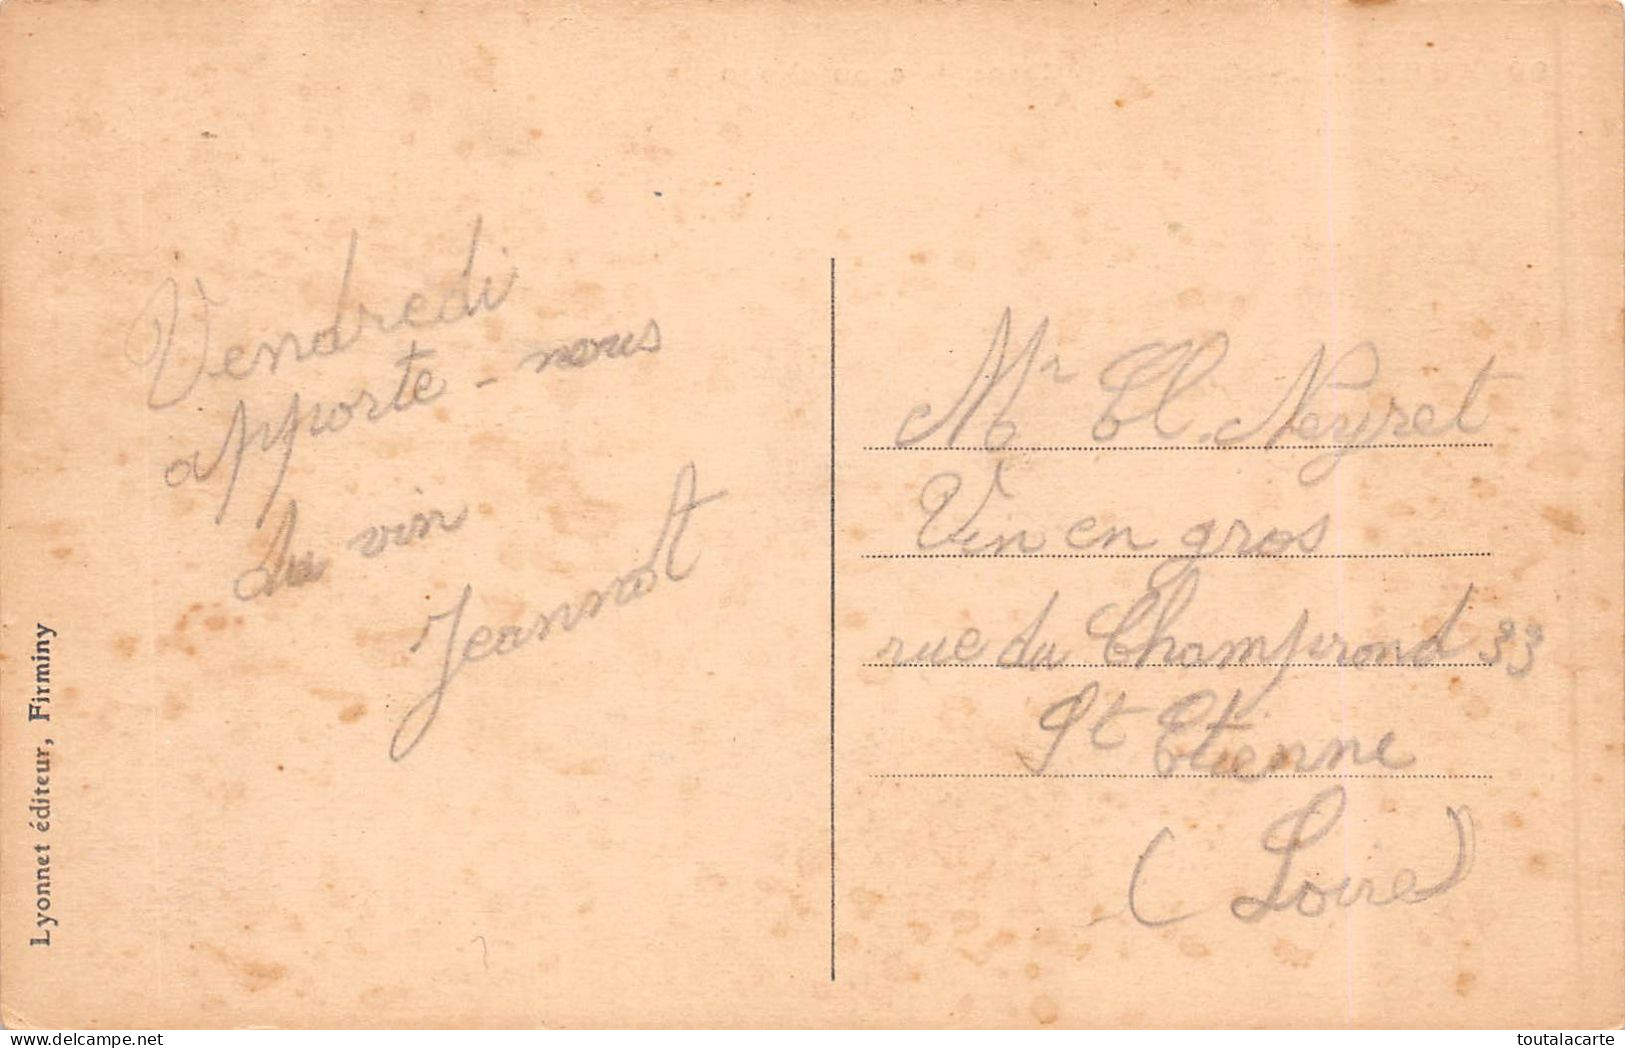 Vendredi
apporte-nous
du vin
Jeannot
Mr Cl. Neyret
Vin en gros
rue du Champrond 33
St Etienne
(Loire)
Lyonnet éditeur, Firminy
toutalacarte